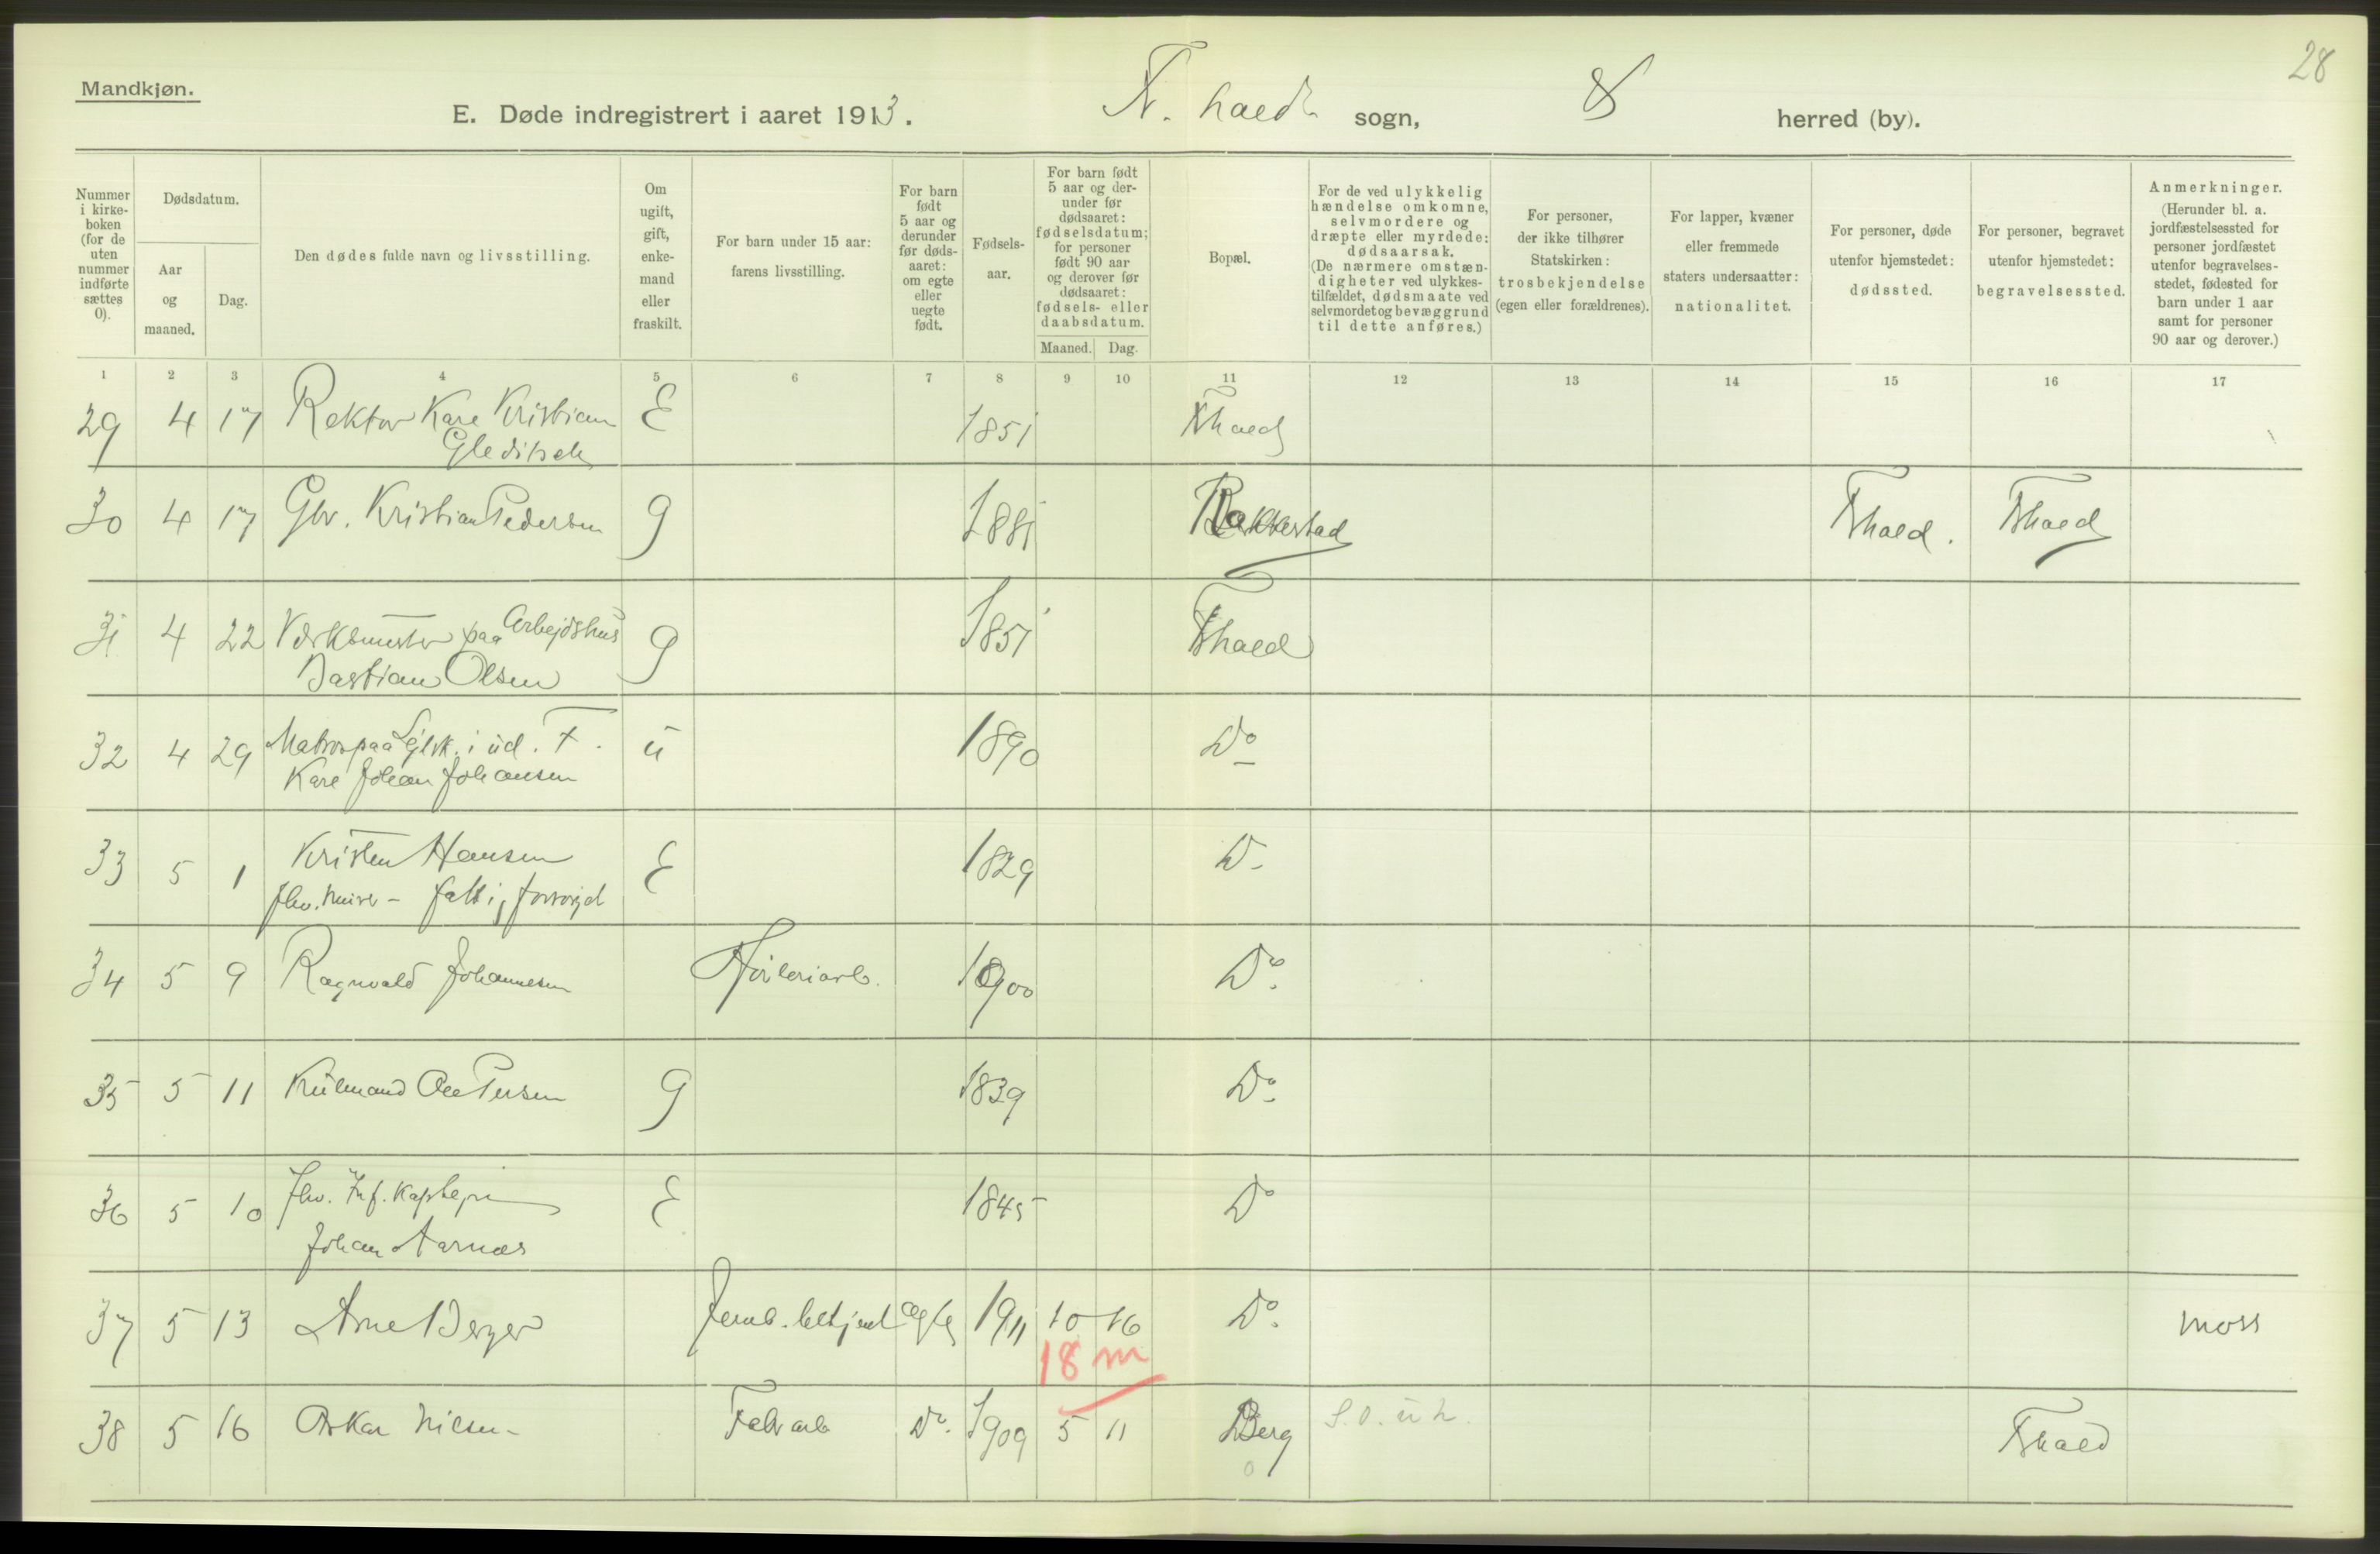 28
Mandkjøn.
E. Døde indregistrert i aaret 1913. F. hald sogn, herred (by).
Nummer i kirkeboken (for de uten nummer indførte sættes 0).
Dødsdatum.
Aar og maaned.
Dag.
Den dødes fulde navn og livsstilling.
Om ugift, gift, enkemand eller fraskilt.
For barn under 15 aar: farens livsstilling.
For barn født 5 aar og derunder før dødsaaret: om egte eller uegte født.
Fødselsaar.
For barn født 5 aar og derunder før dødsaaret: fødselsdatum; for personer født 90 aar og derover før dødsaaret: fødsels- eller daabsdatum.
Maaned. Dag.
Bopæl.
For de ved ulykkelig hændelse omkomne, selvmordere og dræpte eller myrdede: dødsaarsak. (De nærmere omstændigheter ved ulykkestilfældet, dødsmaate ved selvmordet og bevæggrund til dette anføres.)
For personer, der ikke tilhører Statskirken: trosbekjendelse (egen eller forældrenes).
For lapper, kvæner eller fremmede staters undersaatter: nationalitet.
For personer, døde utenfor hjemstedet: dødssted.
For personer, begravet utenfor hjemstedet: begravelsessted.
Anmerkninger. (Herunder bl. a. jordfæstelsessted for personer jordfæstet utenfor begravelsesstedet, fødested for barn under 1 aar samt for personer 90 aar og derover.)
1 2 3 4 5 6 7 8 9 10 11 12 13 14 15 16 17
29 4 17 Rektor Karl Kristian E 1851 Fhald
Gleditsch
30 4 17 Gbr. Kristian Pedersen g 1881 Rakkestad Fhald. Fhald
31 4 22 Verksmester paa Arbejdshus g 1851 Fhald
Bastian Olsen
32 4 29 Matros paa Sejlsk. i ud. F. u 1890 Do
Karl Johan Johansen
33 5 1 Kristen Hansen E 1829 Do
fhv. Murer - fattigforsørget
34 5 9 Ragnvald Johannesen Høvleriarb. 1900 Do.
35 5 11 Kulmand Ole Persen g 1839 Do.
36 5 10 fhv. Inf. Kaptejn E 1845 Do
Johan Aarnæs
37 5 13 Arne Berger Jernb. betjent ægte 1911 10 16 Do. Moss
18 m
38 5 16 Oskar Nilsen Fabr arb Do. 1909 5 11 Berg S.O. u h. Fhald
0